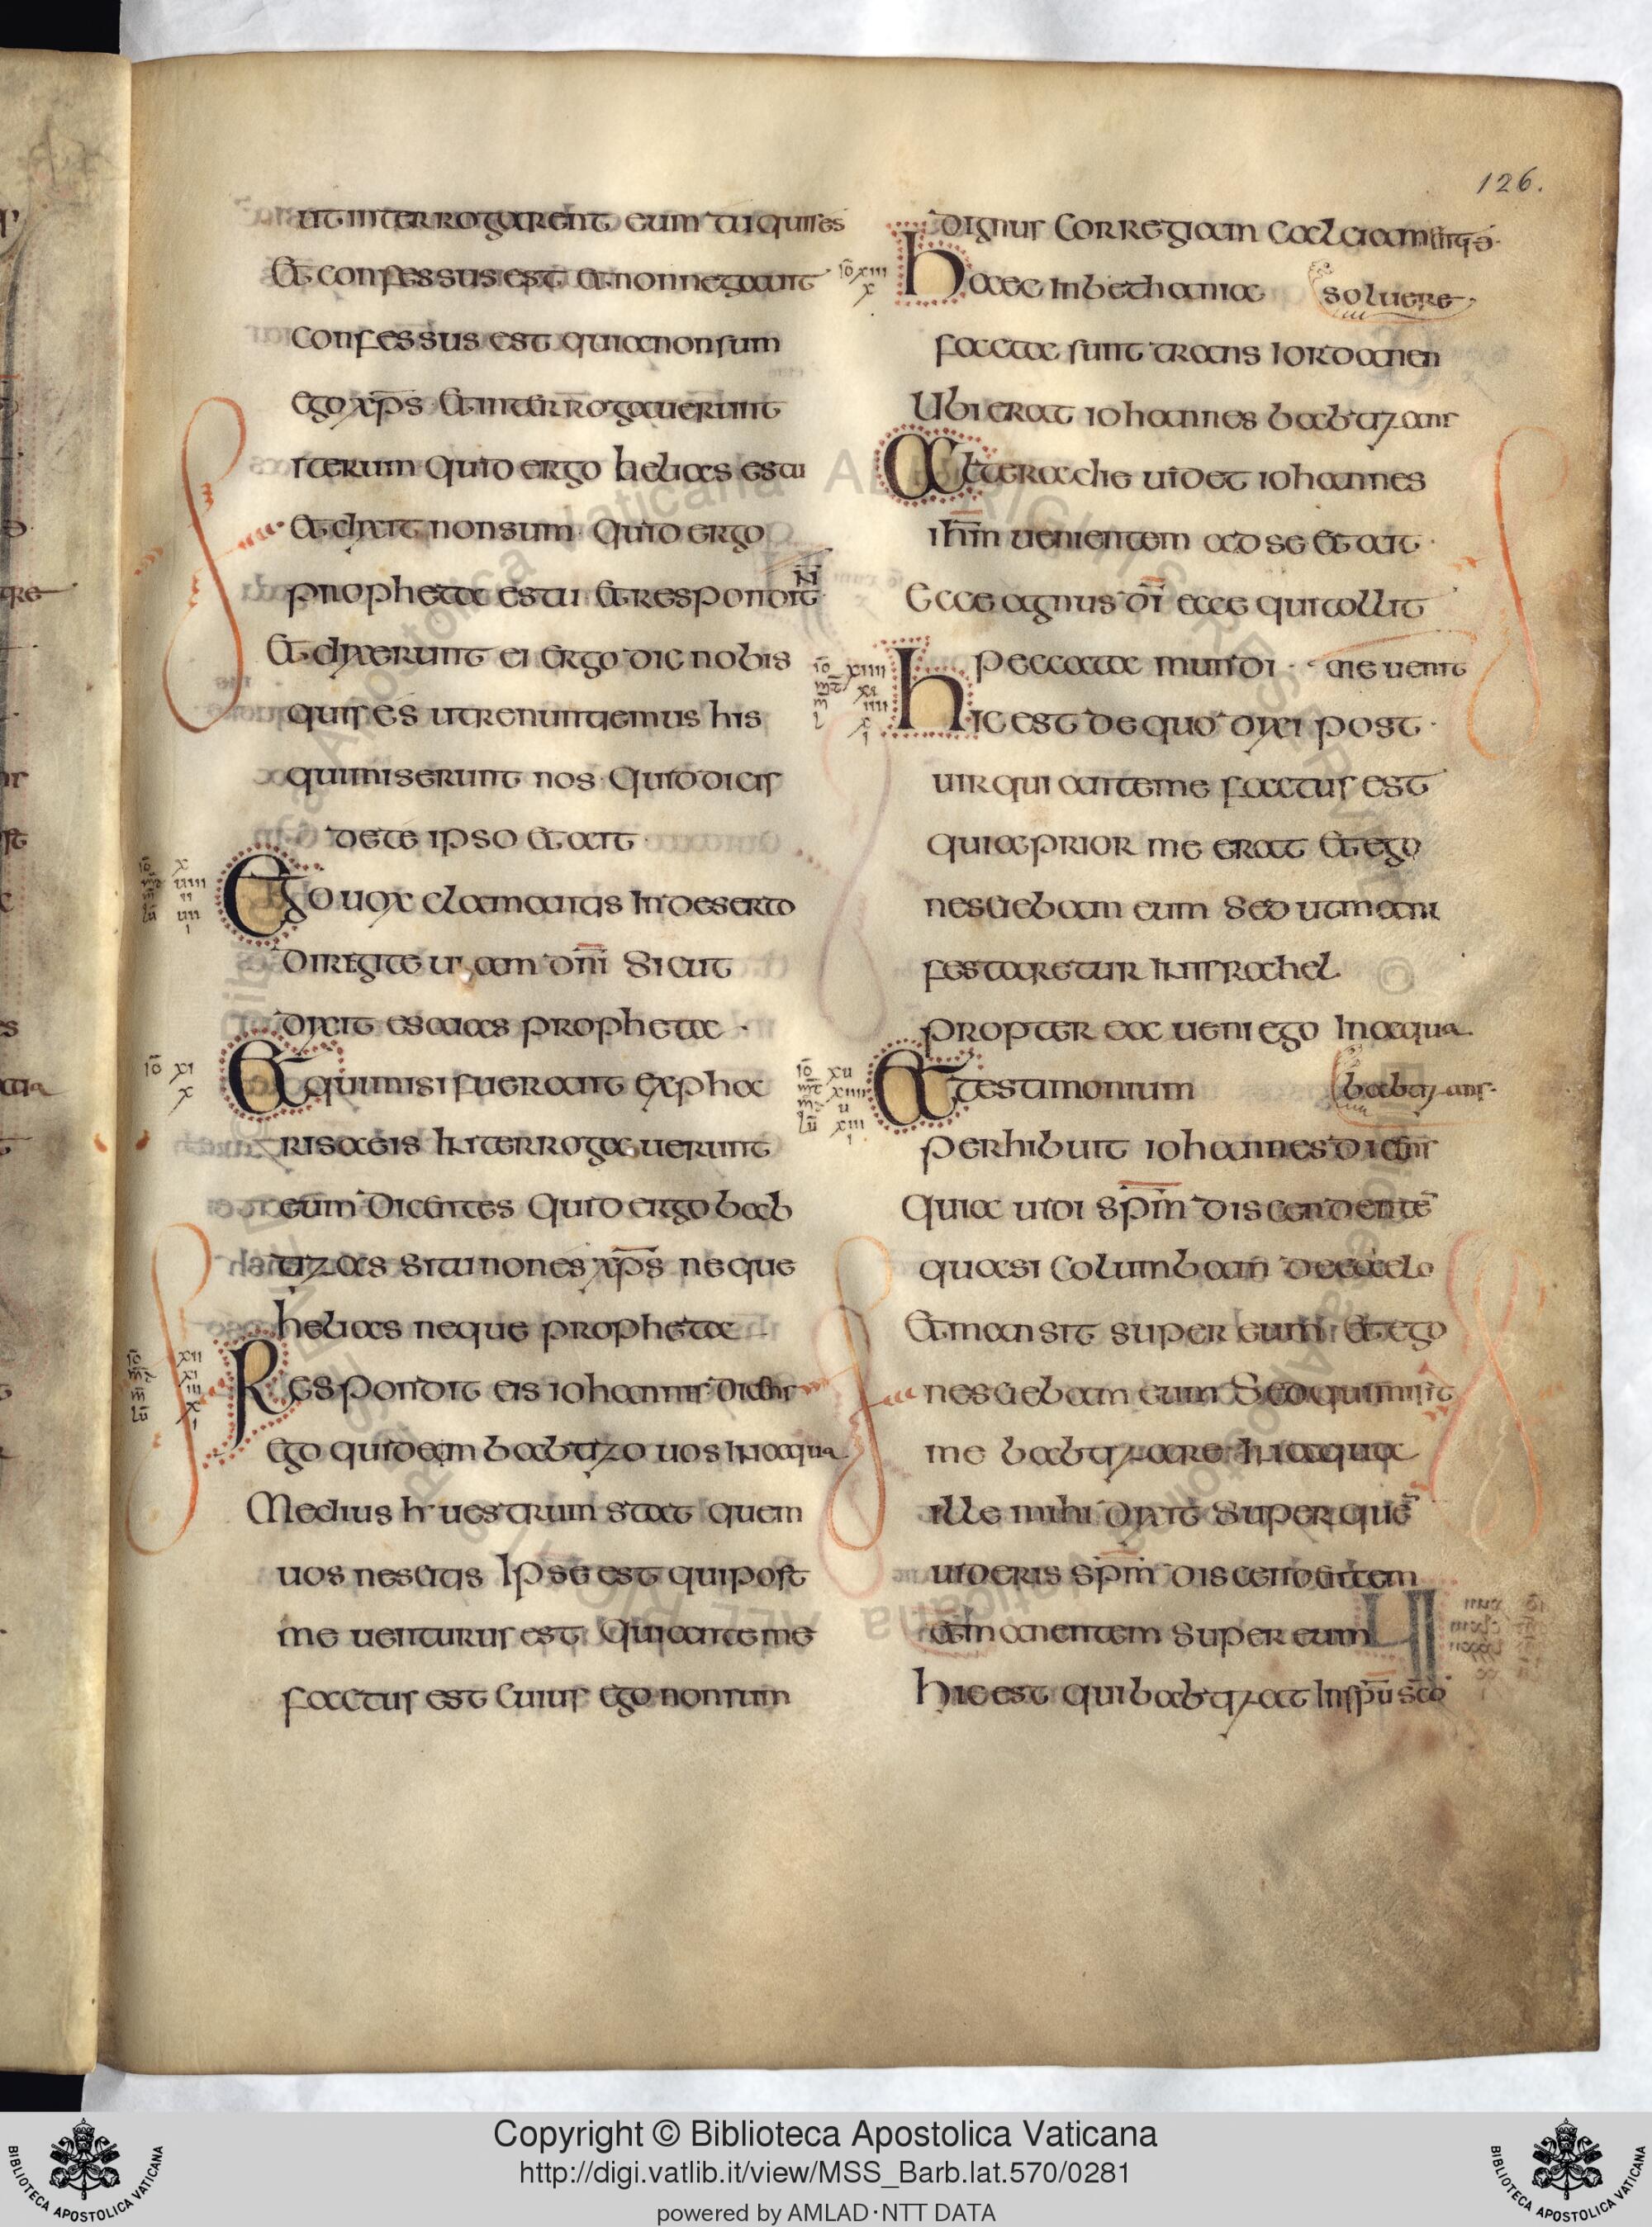 126.
ut interrogarent eum tu quis es
Et confessus est et non negauit
confessus est quia non sum
ego xp̄s Et interrogauerunt
iterum quid ergo helias es tu
Et dixit non sum Quid ergo
propheta es tu Et respondit N̄
Et dixerunt ei ergo dic nobis
quis es ut renuntiemus his
qui miserunt nos Quid dicis
de te ipso Et ait
Ego uox clamantis In deserto
dirigite uiam dn̄i Sicut
dixit esaias propheta
Et qui misi fuerant ex pha
risaeis Interrogauerunt
eum Dicentes Quid ergo bab
tizas si tu non es xp̄s neque
helias neque propheta
Respondit eis iohannis Dicens
Ego quidem babtizo uos In aqua
Medius h uestrum stat quem
uos nescitis Ipse est qui post
me uenturus est Qui ante me
factus est Cuius ego non sum
dignus Corregiam Calciam
soluere
Haec In bethania
facta sunt trans Iordanen
Ubi erat iohannes babtizans
Altera die uidet iohannes
ih̄m uenientem ad se Et ait
Ecce agnus dī ecce qui tollit
peccata mundi
me uenit
Hic est de quo dixi post
uir qui ante me factus est
quia prior me erat Et ego
nesciebam eum Sed ut mani
festaretur In israhel
propter ea ueni ego In aqua
babtizans
Et testimonium
perhibuit iohannes dicens
Quia uidi sp̄m discendentē
quasi Columbam de caelo
Et mansit super eum Et ego
nesciebam eum Sed qui misit
me babtizare In aqua
ille mihi dixit Super quē
uideris sp̄m discendentem
et manentem super eum
hic est qui babtizat In sp̄u sc̄o
Copyright © Biblioteca Apostolica Vaticana
http://digi.vatlib.it/view/MSS_Barb.lat.570/0281
powered by AMLAD·NTT DATA
BIBLIOTECA APOSTOLICA VATICANA
BIBLIOTECA APOSTOLICA VATICANA